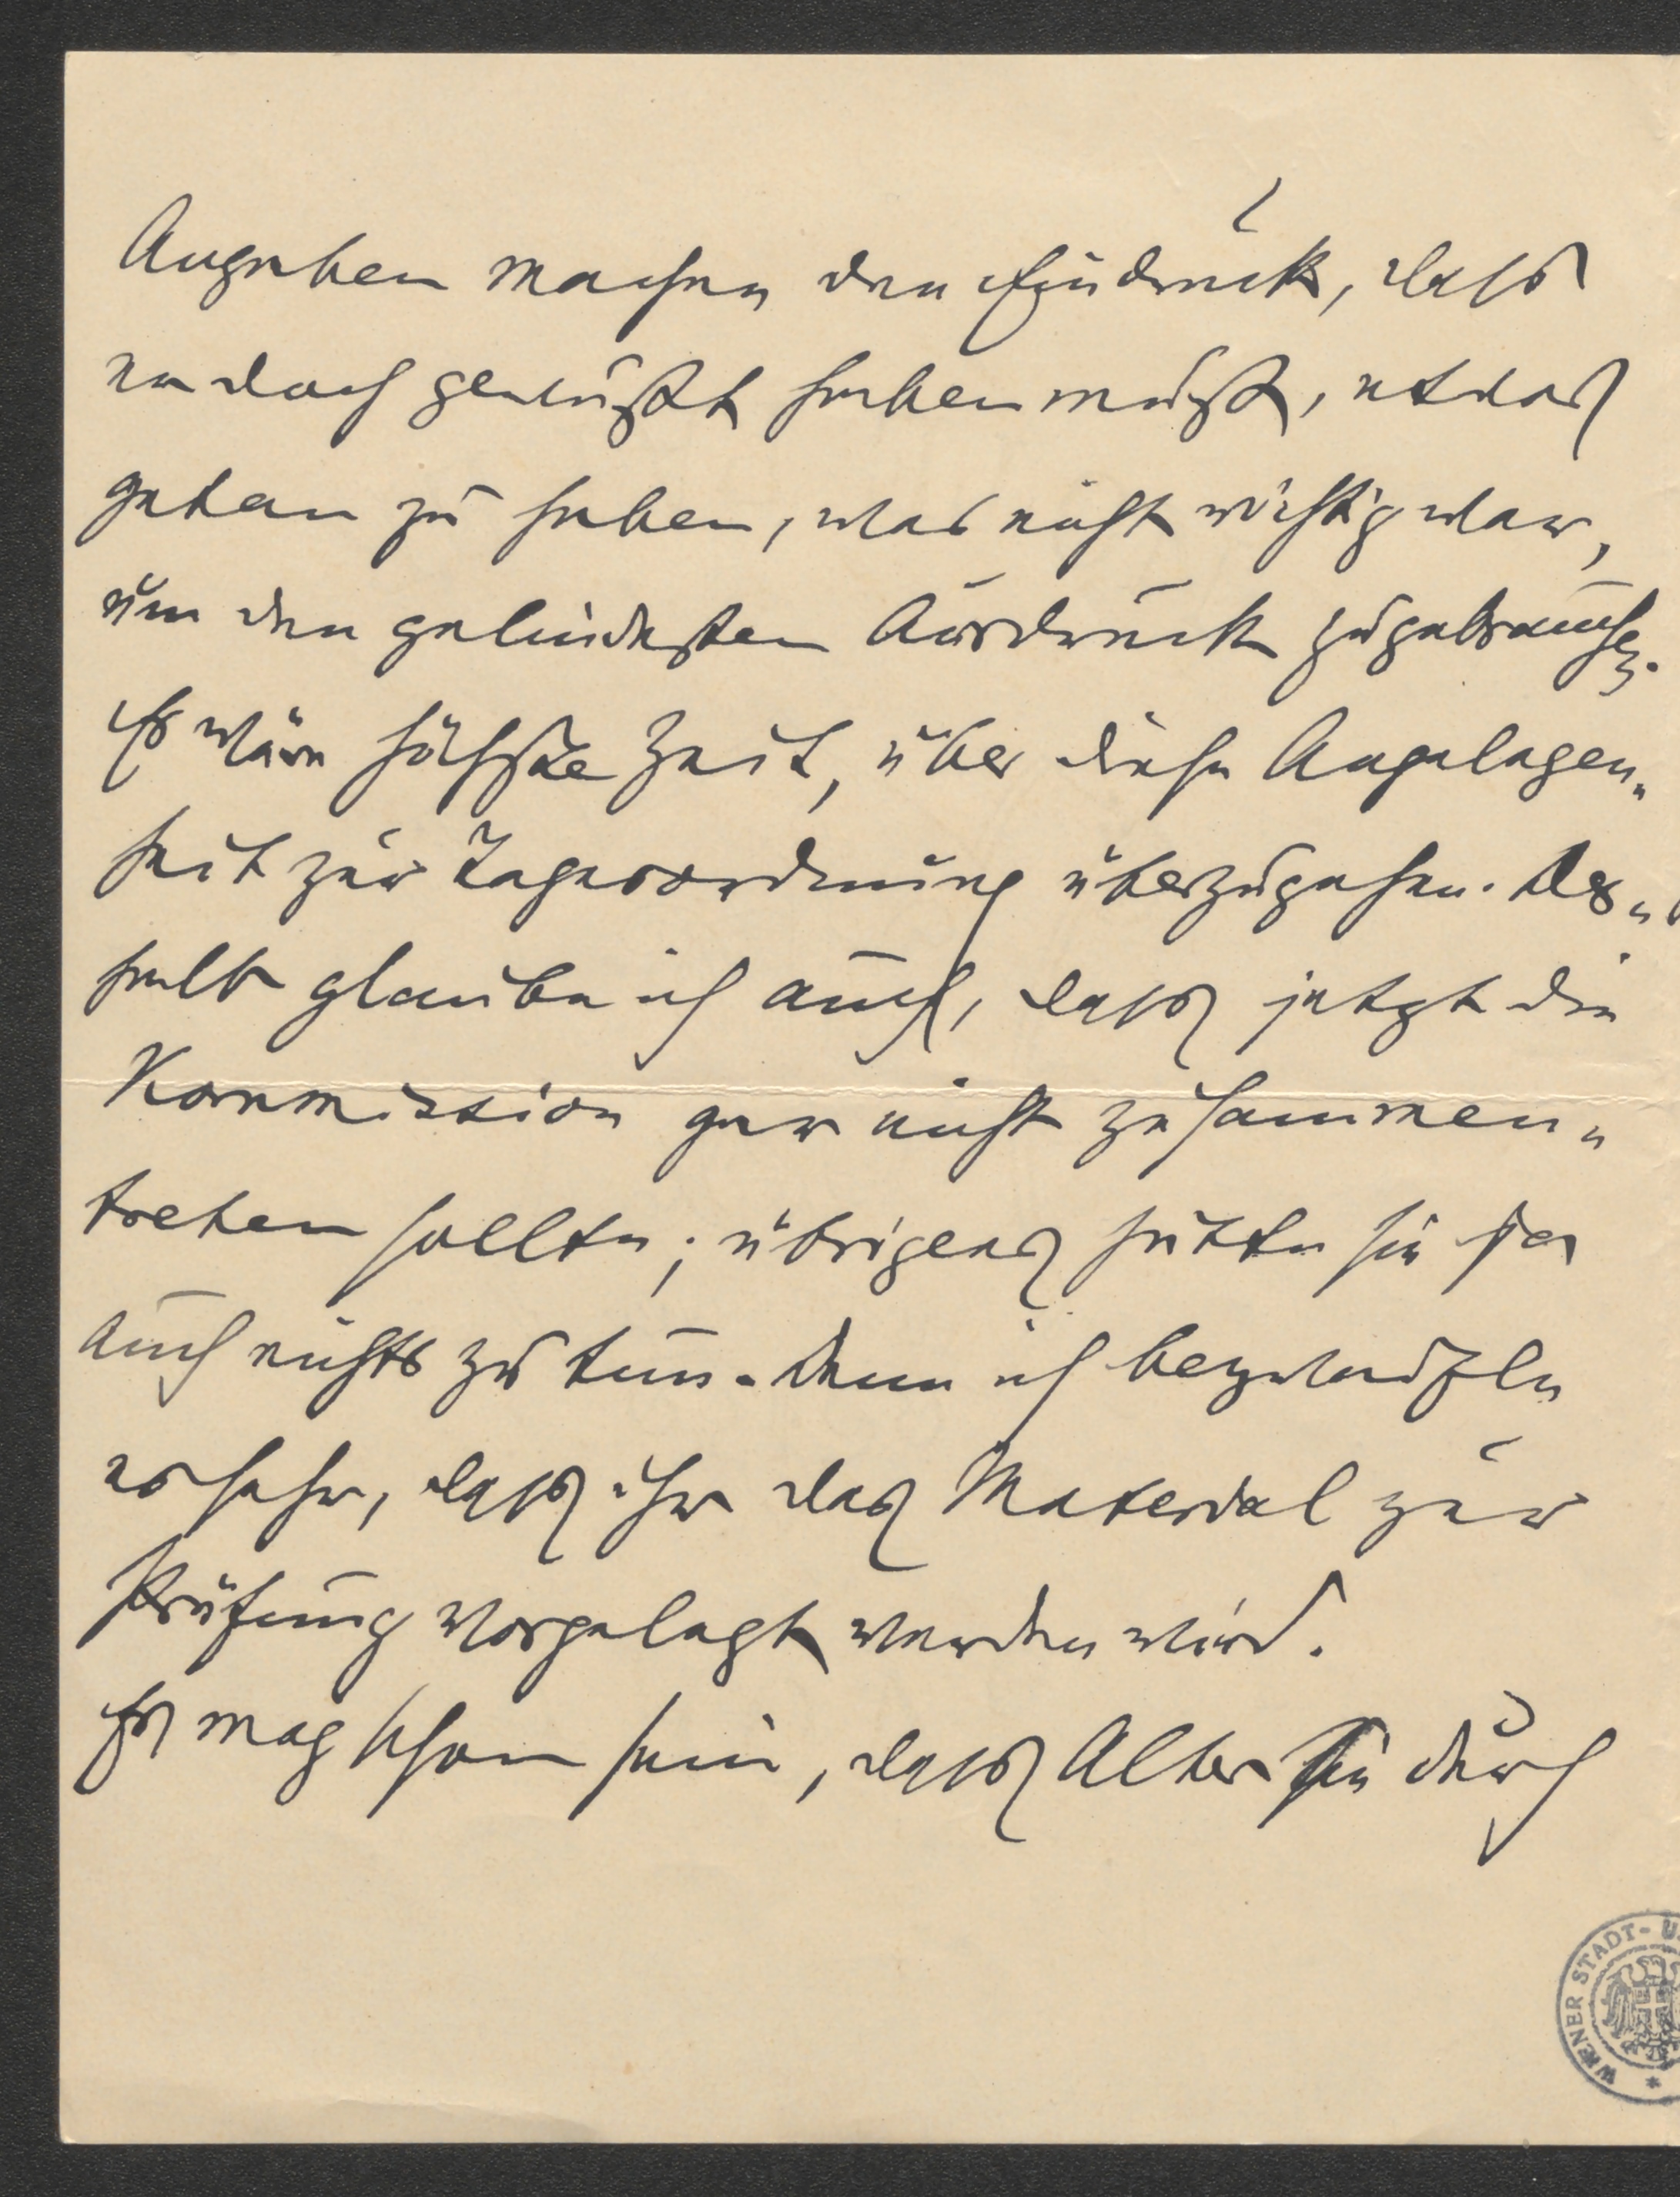 Angaben machen den Eindruck, dass
er doch gewußt haben muß, etwas
getan zu haben, was nicht richtig war,
um den gelindesten Ausdruck zu gebrauchen.
Es wäre höchste Zeit, über diese Angelegen„
heit zur Tagesordnung überzugehen. Des„
halb glaube ich auch, dass jetzt die
Kommission gar nicht zusammen„
treten sollte; übrigens hätte sie ja
auch nichts zu tun. Denn ich bezweifle
es sehr, dass ihr das Material zur
Prüfung vorgelegt werden wird.
Es mag schon sein, dass Alker Sie durch
WIENER STADT- U.